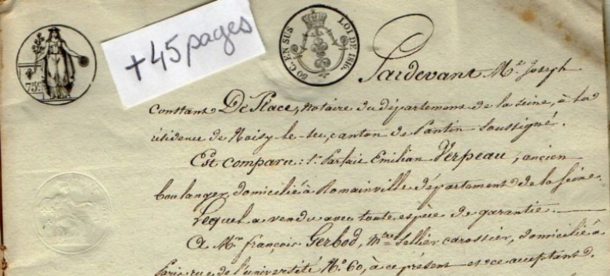 +45 pages
50 C. EN SUS
LOI DE 1816.
75 C
Pardevant Me. Joseph
Constant De Place, notaire du département de la Seine, à la
résidence de Noisy-le-sec, canton de Pantin soussigné.
Est comparu: Sr. Parfait Emilian Verpeau, ancien
boulanger, domicilié à Romainville département de la Seine.
Lequel a vendu avec toute espèce de garantie.
A Mr. François Gerbod, Mtre Sellier carossier, domicilié à
Paris, rue de l'université No. 60, à ce présent et ce acceptant.